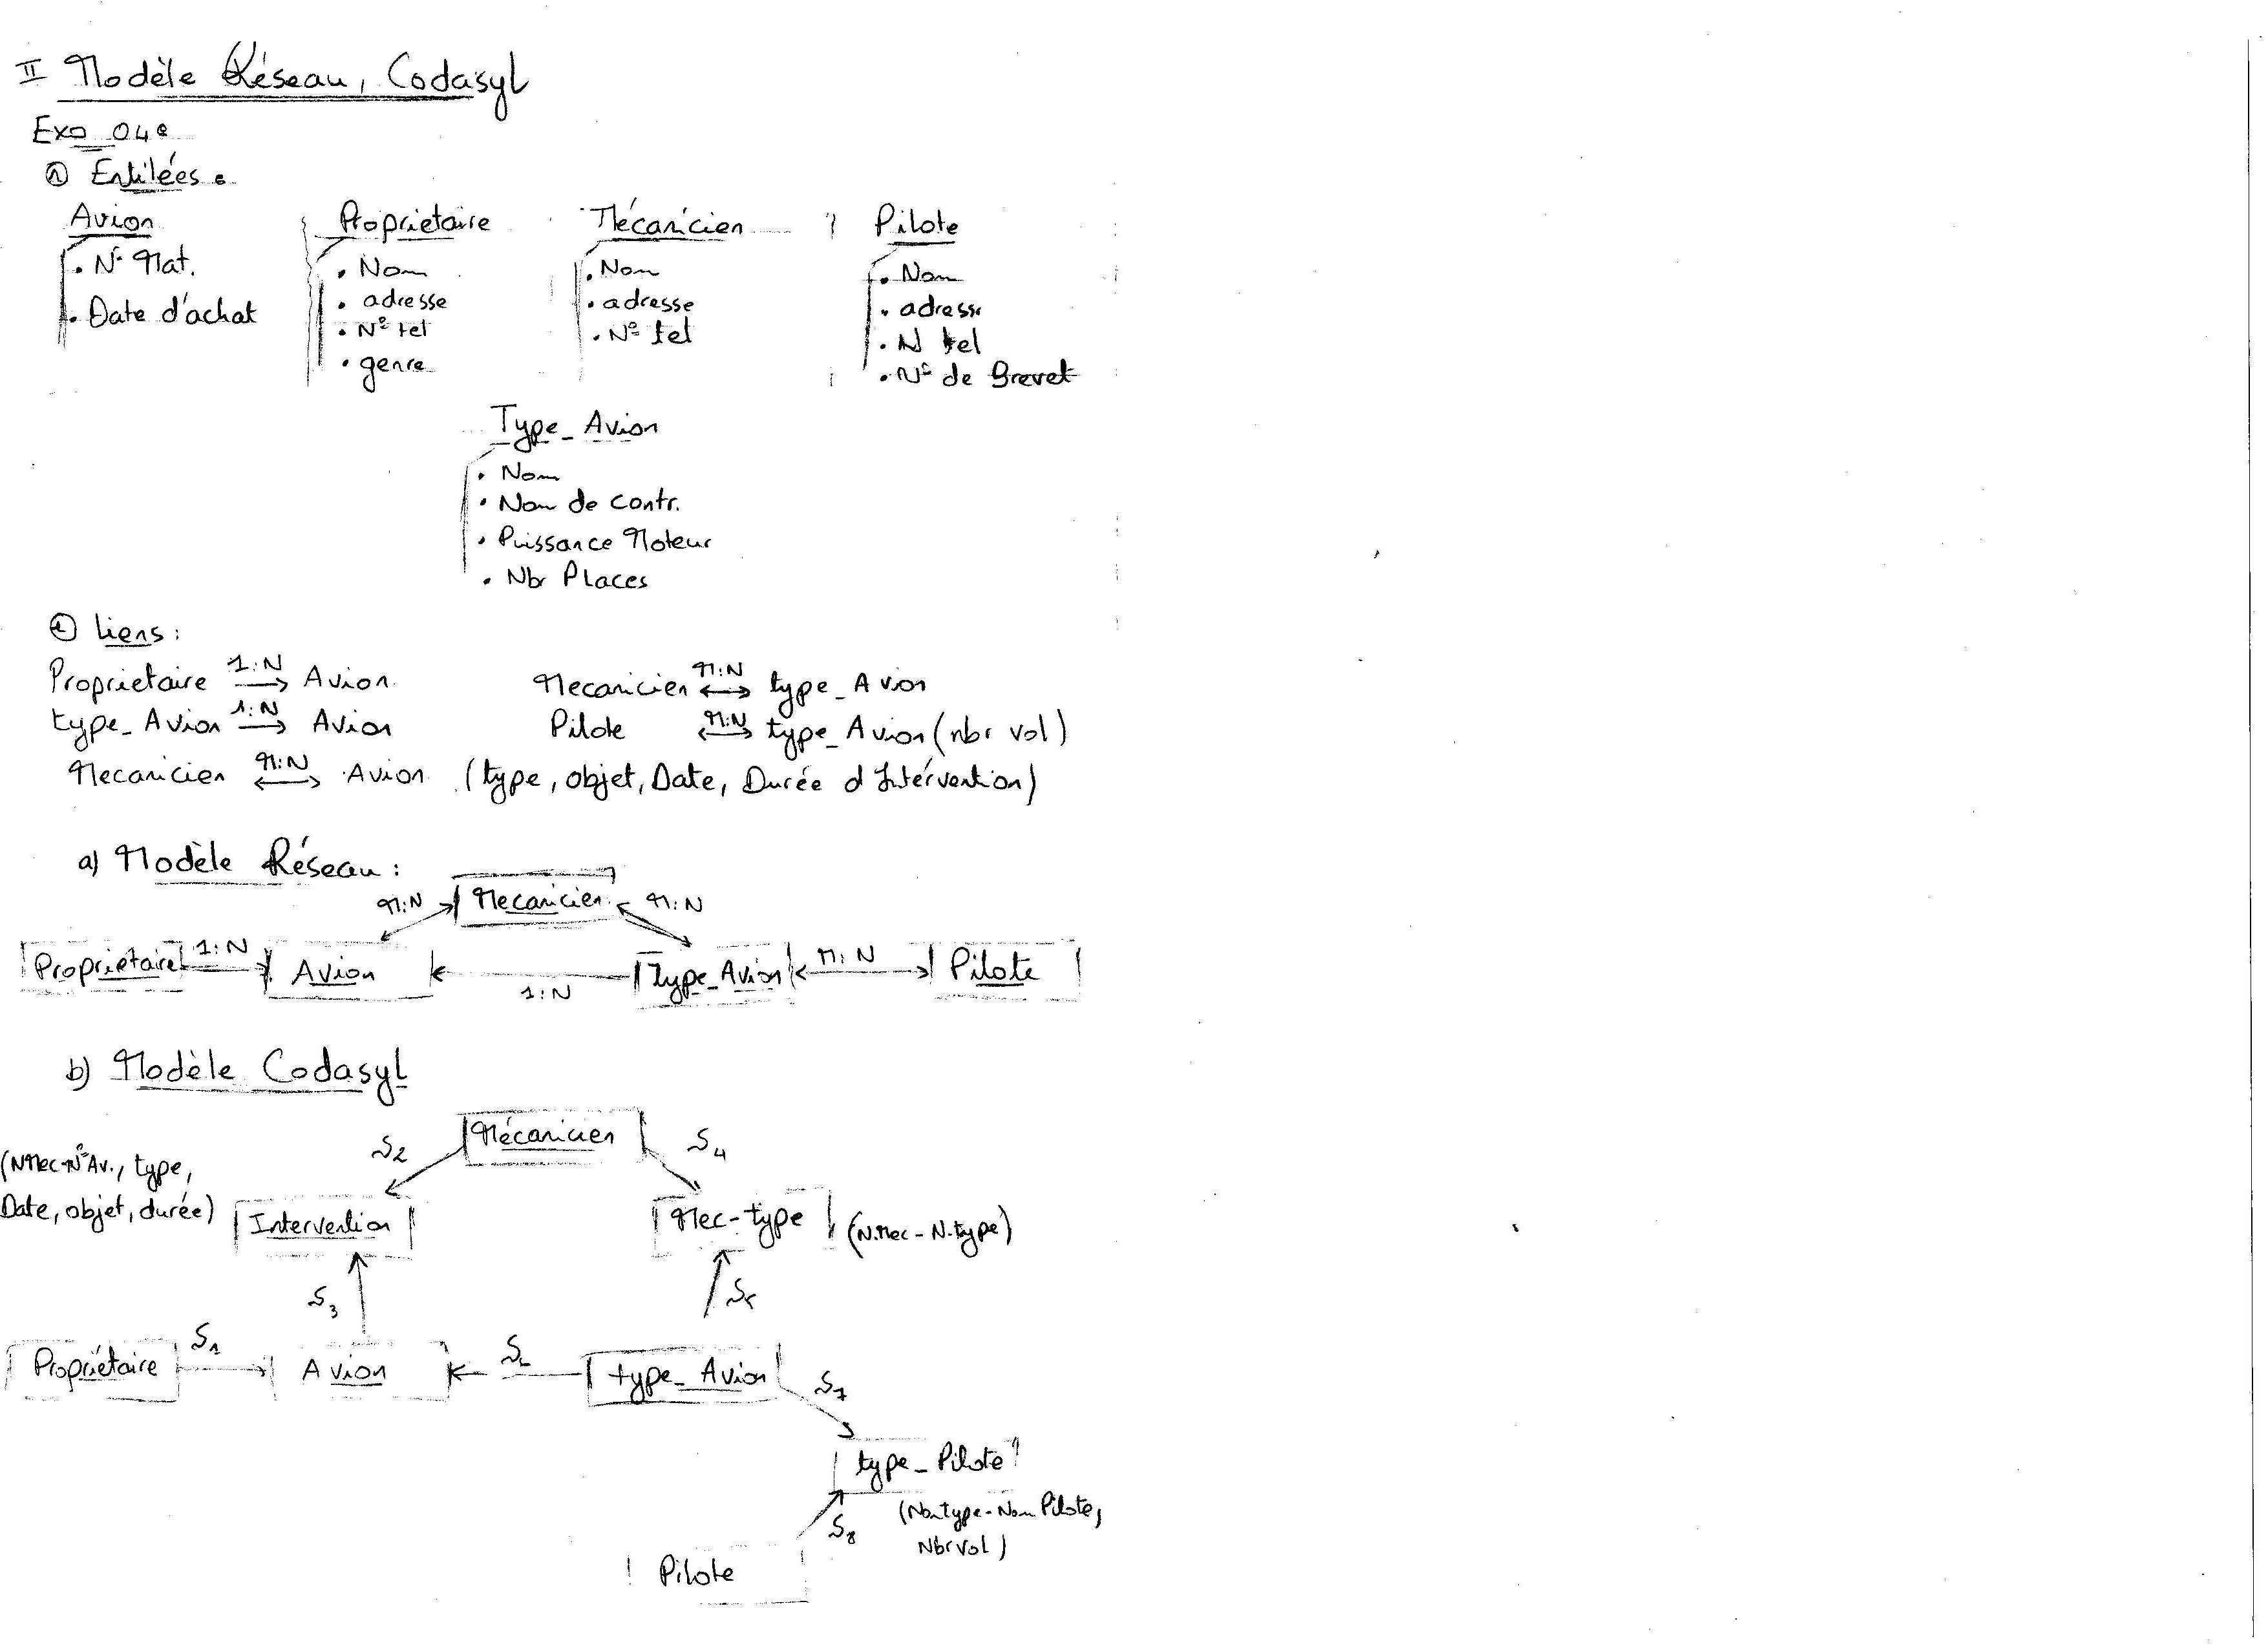 II Modèle Réseau, Codasyl
Exo 04:
① Entitées:
Avion
• N° Mat.
• Date d'achat
Proprietaire
• Nom
• adresse
• N° tel
• genre
Mécanicien
• Nom
• adresse
• N° tel
Pilote
• Nom
• adresse
• N tel
• N° de Brevet
Type_Avion
• Nom
• Nom de contr.
• Puissance Moteur
• Nbr Places
② liens:
Proprietaire 1:N → Avion
Mecanicien M:N ↔ type_Avion
type_Avion 1:N → Avion
Pilote M:N ↔ type_Avion (nbr vol)
Mecanicien M:N ↔ Avion (type, objet, Date, Durée d'Intérvention)
a) Modèle Réseau:
M:N Mecanicien M:N
Proprietaire 1:N Avion 1:N Type_Avion M:N Pilote
b) Modèle Codasyl
S2 Mécanicien S4
(NMec-N°Av., type,
Date, objet, durée) Intervention
Mec-type (N.Mec - N.type)
S3 S5
Propriétaire S1 Avion type_Avion S7
type_Pilote
(Nom type - Nom Pilote,
Nbr Vol)
S8
Pilote